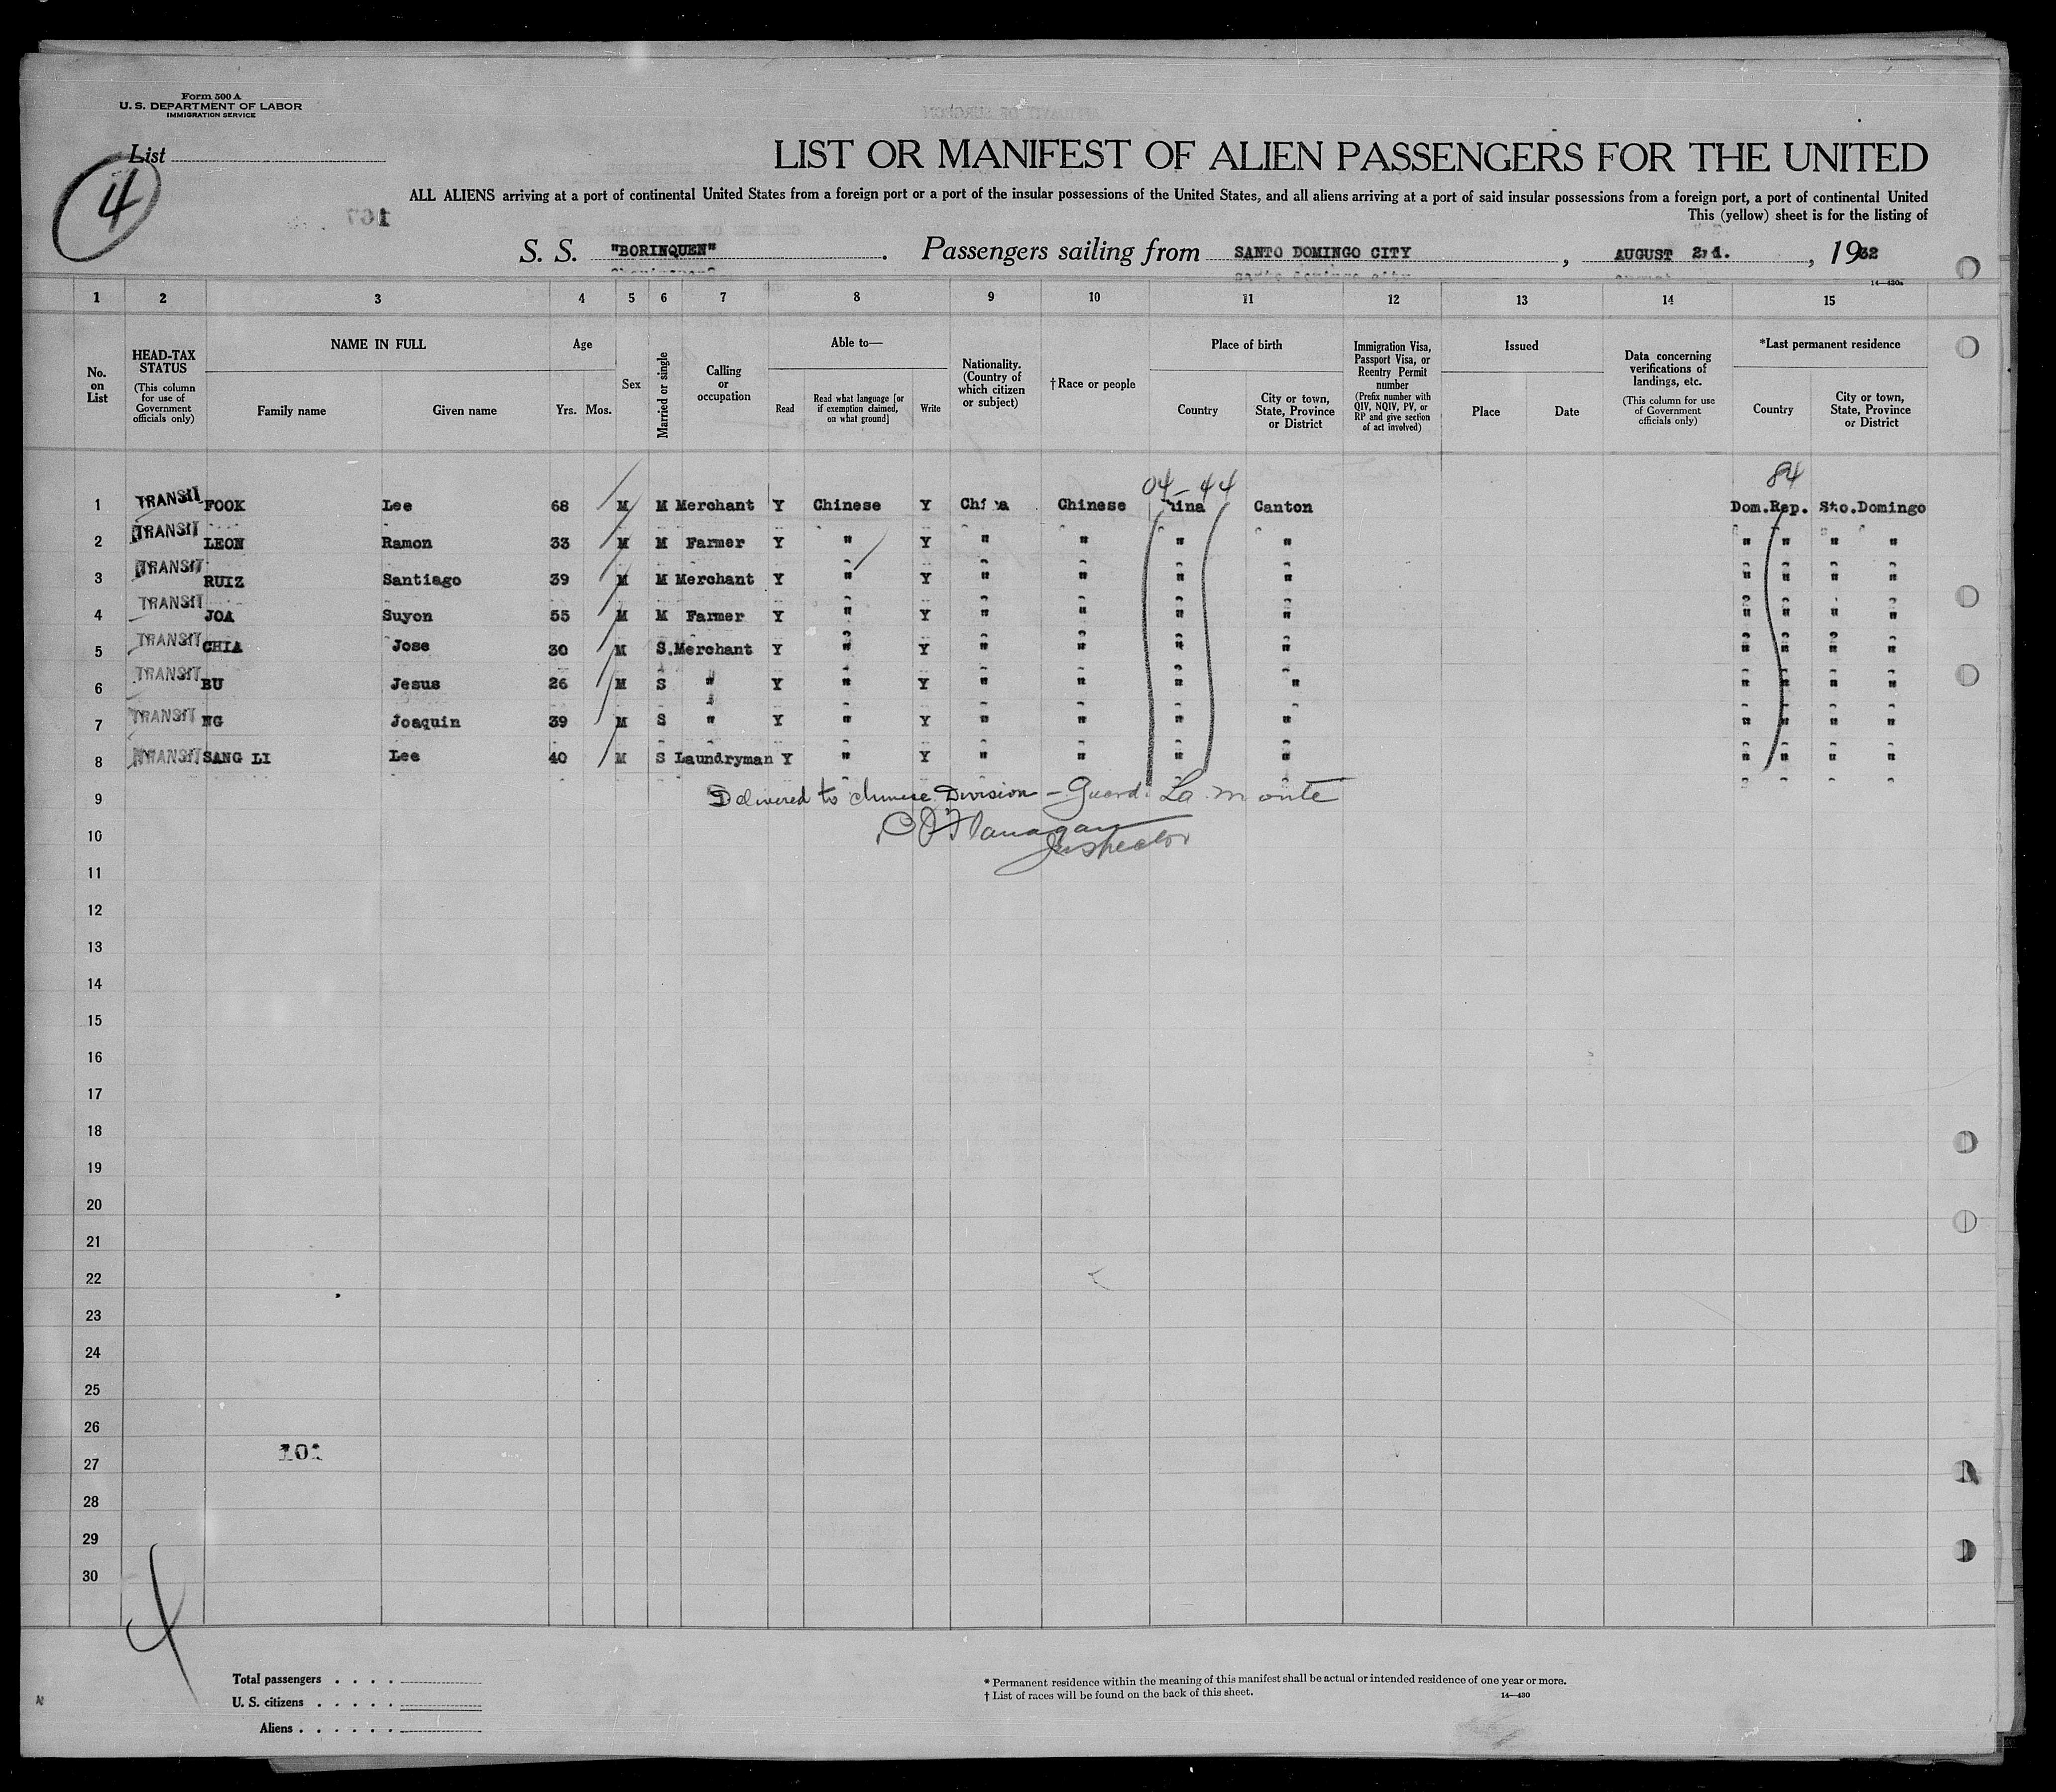 Form 500 A
U. S. DEPARTMENT OF LABOR
IMMIGRATION SERVICE
List
4
LIST OR MANIFEST OF ALIEN PASSENGERS FOR THE UNITED
ALL ALIENS arriving at a port of continental United States from a foreign port or a port of the insular possessions of the United States, and all aliens arriving at a port of said insular possessions from a foreign port, a port of continental United
This (yellow) sheet is for the listing of
167
S. S. "BORINQUEN". Passengers sailing from SANTO DOMINGO CITY, AUGUST 2nd., 1932
14—430a
1 2 3 4 5 6 7 8 9 10 11 12 13 14 15
No. on List
HEAD-TAX STATUS
(This column for use of Government officials only)
NAME IN FULL
Family name Given name
Age
Yrs. Mos.
Sex
Married or single
Calling or occupation
Able to—
Read
Read what language [or if exemption claimed, on what ground]
Write
Nationality. (Country of which citizen or subject)
† Race or people
Place of birth
Country
City or town, State, Province or District
Immigration Visa, Passport Visa, or Reentry Permit number
(Prefix number with QIV, NQIV, PV, or RP and give section of act involved)
Issued
Place Date
Data concerning verifications of landings, etc.
(This column for use of Government officials only)
*Last permanent residence
Country
City or town, State, Province or District
04-44 84
1 TRANSIT FOOK Lee 68 M M Merchant Y Chinese Y China Chinese China Canton Dom.Rep. Sto.Domingo
2 TRANSIT LEON Ramon 33 M M Farmer Y " Y " " " " " " " "
3 TRANSIT RUIZ Santiago 39 M M Merchant Y " Y " " " " " " " "
4 TRANSIT JOA Suyon 55 M M Farmer Y " Y " " " " " " " "
5 TRANSIT CHIA Jose 30 M S. Merchant Y " Y " " " " " " " "
6 TRANSIT BU Jesus 26 M S " Y " Y " " " " " " " "
7 TRANSIT NG Joaquin 39 M S " Y " Y " " " " " " " "
8 TRANSIT SANG LI Lee 40 M S Laundryman Y " Y " " " " " " " "
9 Delivered to Chinese Division - Guard La monte
10 Flanagan
Inspector
11
12
13
14
15
16
17
18
19
20
21
22
23
24
25
26
101
27
28
29
30
Total passengers
U. S. citizens
Aliens
* Permanent residence within the meaning of this manifest shall be actual or intended residence of one year or more.
† List of races will be found on the back of this sheet.
14—430